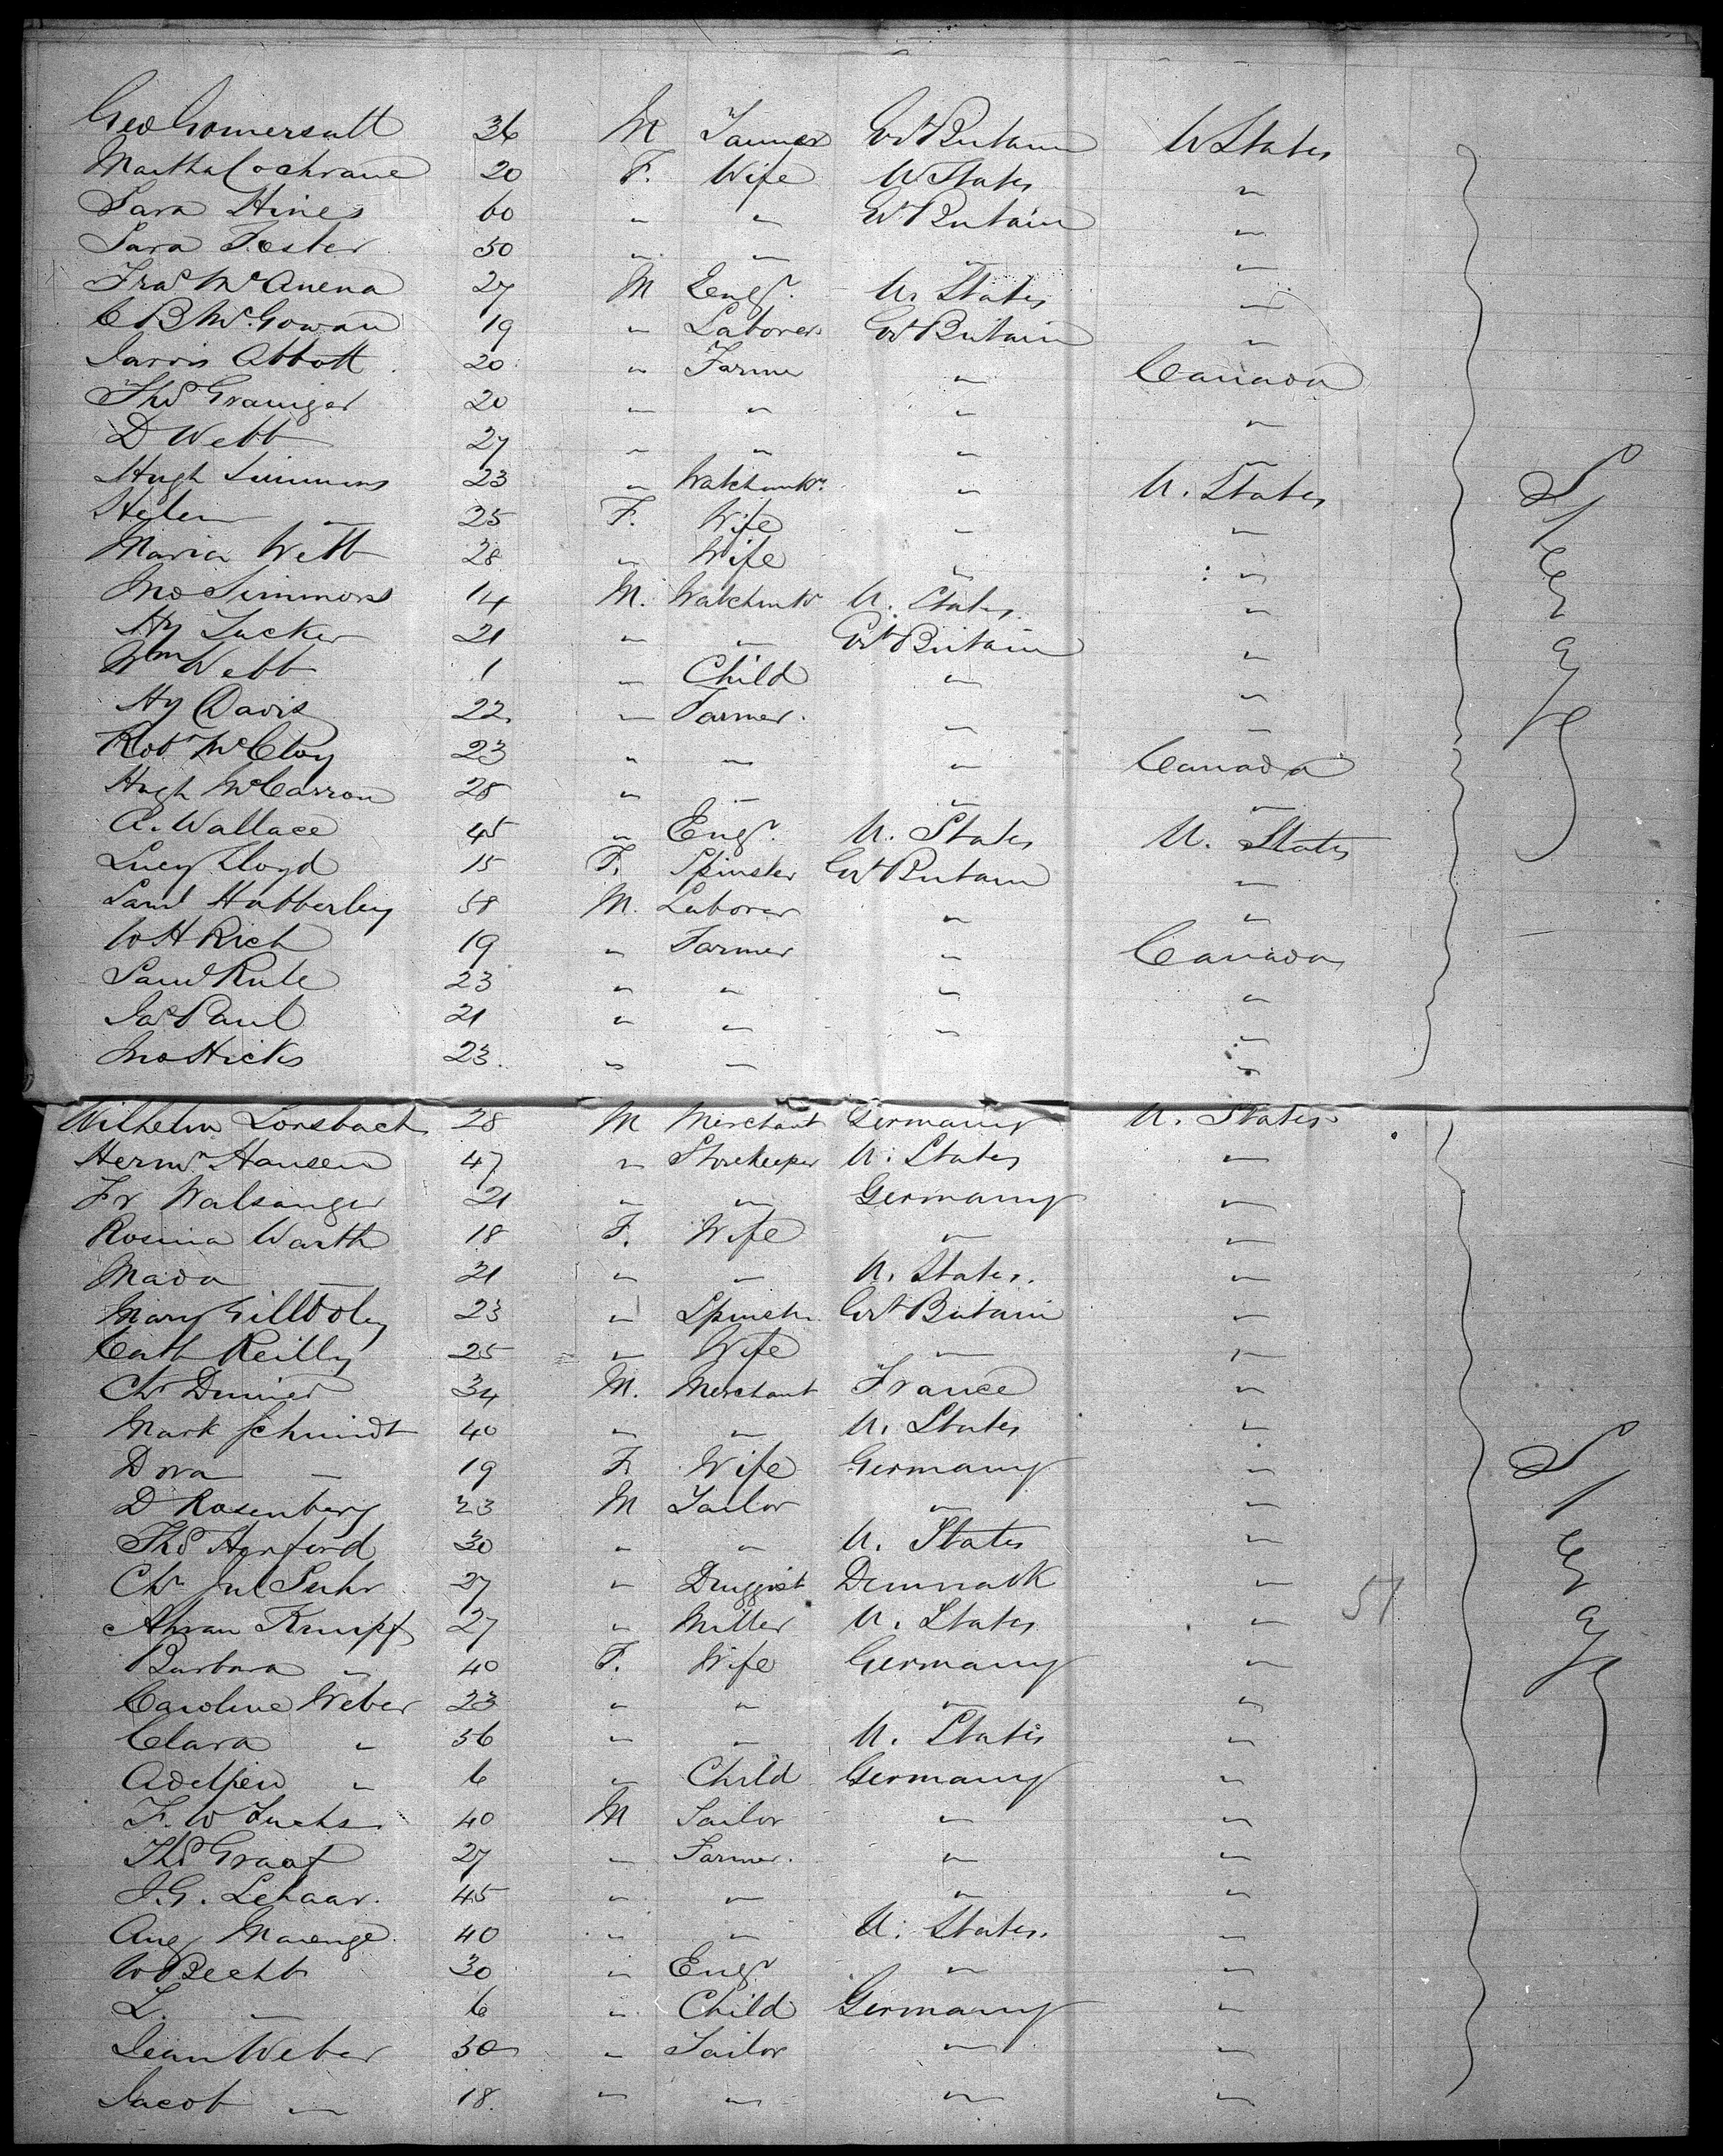 Geo Gomersall 36 M Tanner Gt Britain U States
Martha Cochrane 20 F. Wife U States "
Sara Hines 60 " " Gt Britain "
Sara Foster 50 " " " "
Fras McAnena 27 M Engr. U. States "
C B McGowan 19 " Laborer Gt Britain "
Jarvis Abbott 20 " Farmer " Canada
Thos Grainger 20 " " " "
D Webb 27 " " " "
Hugh Simmons 23 " Watchmkr. " U. States
Helen " 25 F. Wife " "
Maria Webb 28 " Wife " "
Jno Simmons 14 M. Watchmkr U. States "
Hy Tucker 21 " " Gt Britain "
Wm Webb 1 " Child " "
Hy Davis 22 " Farmer. " "
Robt McCloy 23 " " " Canada
Hugh McCarron 28 " " " "
A. Wallace 45 " Engr. U. States U. States
Lucy Lloyd 15 F. Spinster Gt Britain "
Saml Habberley 58 M. Laborer " "
W H Rich 19 " Farmer " Canada
Saml Rule 23 " " " "
Jas Paul 21 " " " "
Jno Hicks 23 " " " "
Steerage
Wilhelm Lorsbach 28 M Merchant Germany U. States
Hermn. Hansen 47 " Storekeeper U. States "
Fr Walsanger 21 " " Germany "
Rosina Warth 18 F. Wife " "
" 21 " " U. States. "
Mary 23 " Spinstr Gt Britain "
Cath Reilly 25 " Wife " "
Chr 34 M. Merchant France "
Mark Schmidt 40 " " U. States "
Dora " 19 F. Wife Germany "
D Rosenberg 23 M Tailor " "
Thos Harford 30 " " U. States "
Chr Jul Suhr 27 " Druggist Denmark "
Krumpf 27 " Miller U. States " 51
Barbara " 40 F. Wife Germany "
Caroline Weber 23 " " " "
Clara " 56 " " U. States "
" 6 " Child Germany "
F. W Fuchs 40 M Tailor " "
Thd Graaf 27 " Farmer. " "
J. G. 45 " " " "
Aug 40 " " U. States. "
W Becht 30 " Engr " "
L. " 6 " Child Germany "
Jean Weber 30 " Tailor " "
Jacob " 18. " " " "
Steerage